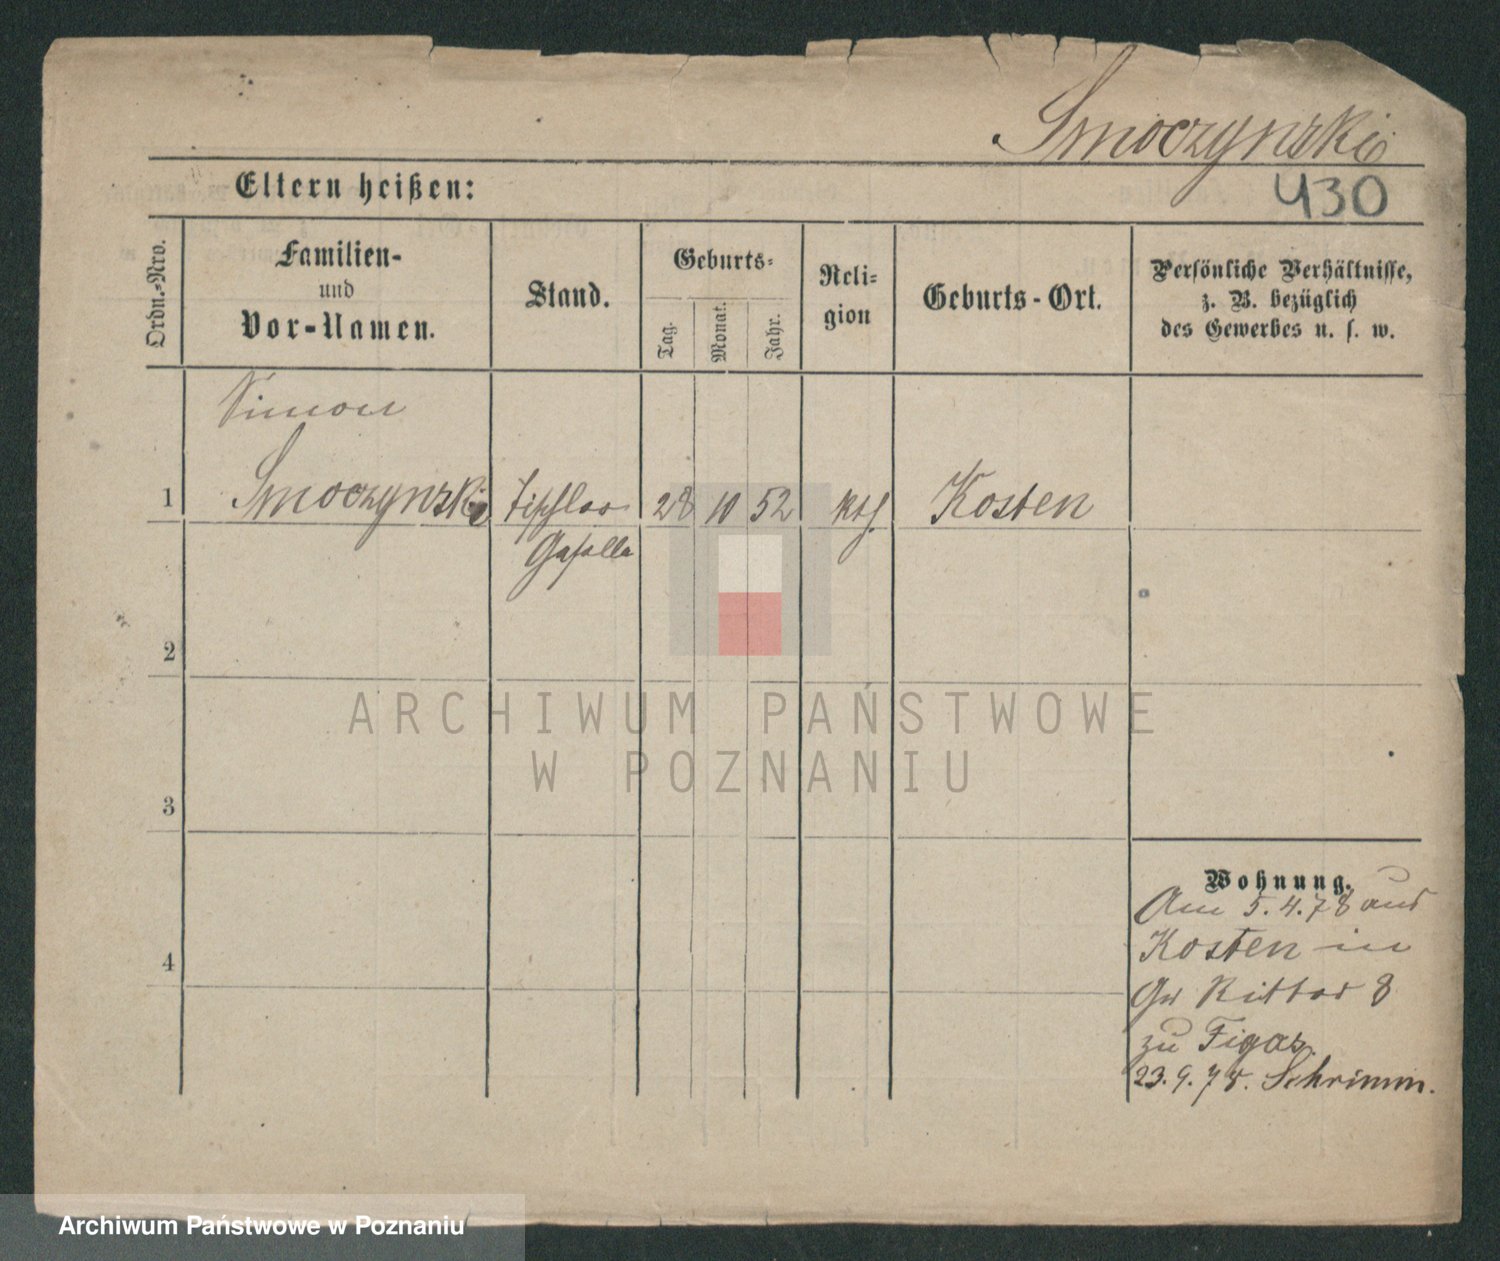 Smoczynski
Eltern heißen:
430
Ordn.-Nro.
Familien-
und
Vor-Namen.
Stand.
Geburts-
Tag.
Monat.
Jahr.
Reli-
gion
Geburts-Ort.
Persönliche Verhältnisse,
z. B. bezüglich
des Gewerbes u. s. w.
Simon
1 Smoczynski Tischler 28 10 52 kth. Kosten
Geselle
2
ARCHIWUM PAŃSTWOWE
W POZNANIU
3
Wohnung.
Am 5.4.78 aus
Kosten in
4
Gr Ritter 8
zu Figas
23.9.78. Schrimm.
Archiwum Państwowe w Poznaniu